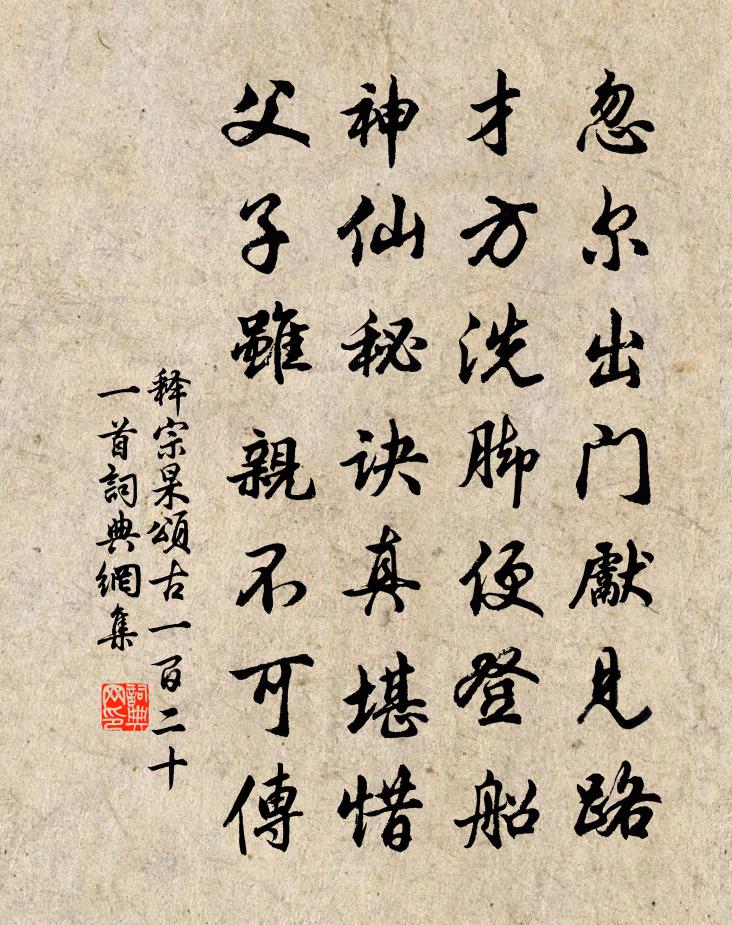 忽尔出门獻見路
才方洗脚便登船
神仙秘诀真堪惜
父子雖親不可傳
释宗杲頌古一百二十
一首詞典網集
詞典
网印